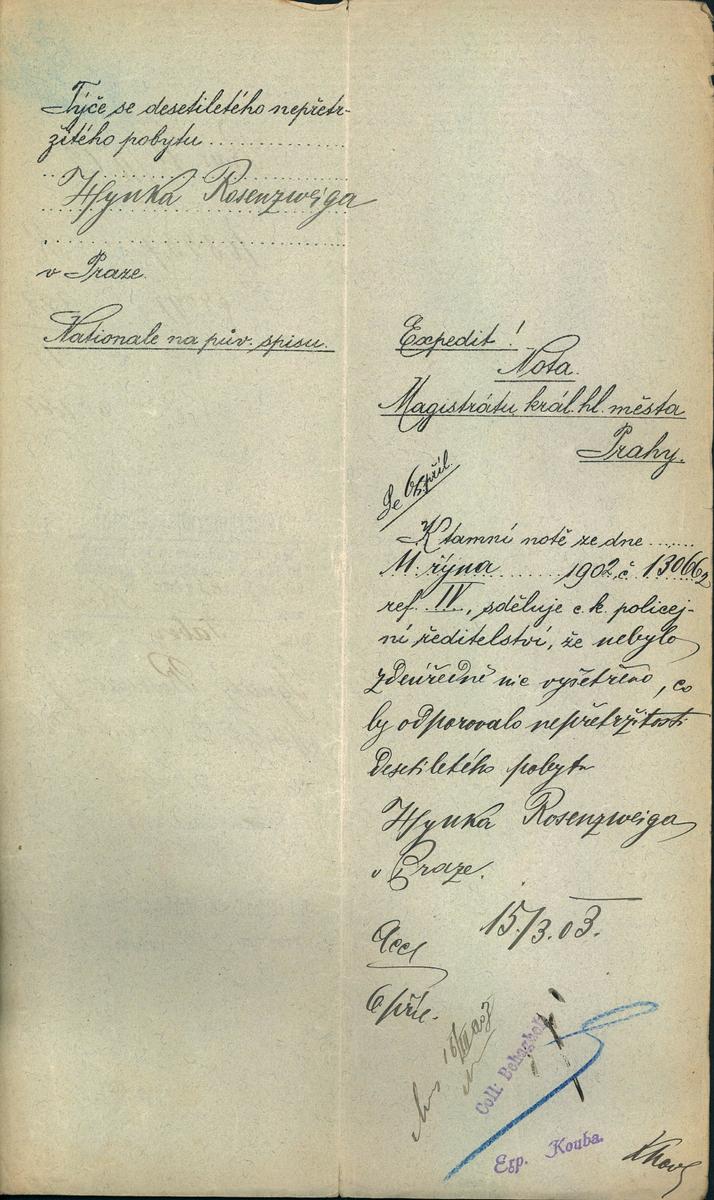 Týče se desetiletého nepřetr-
žitého pobytu
Hynka Rosenzweiga
v Praze.
Nationale na pův. spisu.
Expedit!
Nota.
Magistrátu král. hl. města
Prahy.
Se 6 příl.
K tamní notě ze dne
11. října 1902 č. 130662
ref. IV., sděluje c. k. policej-
ní ředitelství, že nebylo
zdeúředně nic vyšetřeno, co
by odporovalo nepřetržitosti
desetiletého pobytu
Hynka Rosenzweiga
v Praze.
15./3. 03.
Acc
6 příl.
16/III 903
Coll: Behaghel
Exp. Kouba.